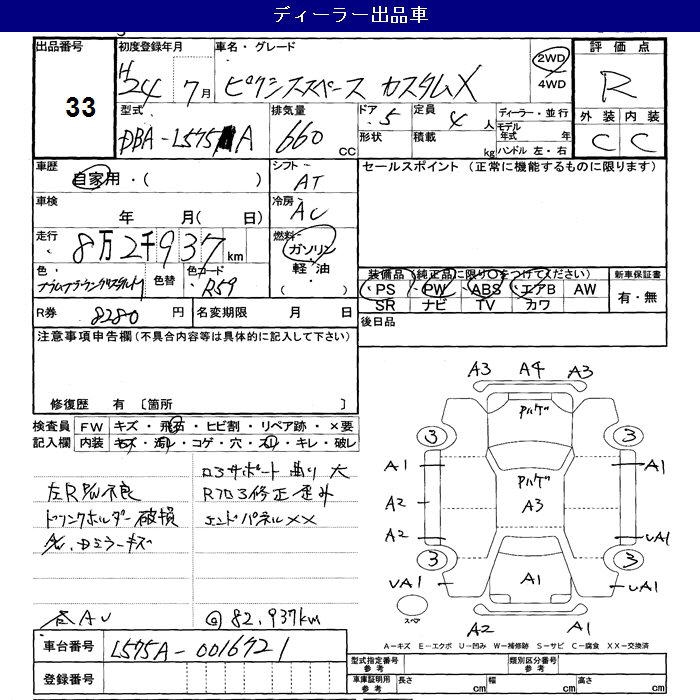 ディーラー出品車
出品番号
33
初度登録年月
H24 7月
車名・グレード
ピクシススペース カスタムX
2WD
4WD
評価点
R
外装 内装
C C
型式
DBA-L575A
排気量
660 CC
ドア 5
定員 4 人
形状
積載 kg
ディーラー・並行
モデル年式 年
ハンドル 左・右
車歴
自家用・( )
シフト
AT
車検
年 月( 日)
冷房
AC
走行
8万2千937km
燃料
ガソリン
軽油
( )
色
色替
色コード
R59
R券 8280 円
名変期限 月 日
セールスポイント (正常に機能するものに限ります)
装備品(純正品に限り○をつけてください)
PS PW ABS エアB AW
SR ナビ TV カワ
新車保証書
有・無
後日品
注意事項申告欄(不具合内容等は具体的に記入して下さい)
修復歴 有 〔箇所 〕
検査員 FW キズ・飛石・ヒビ割・リペア跡・×要
記入欄 内装 キズ・汚レ・コゲ・穴・スレ・キレ・破レ
コアサポート曲り大
ドリンクホルダー破損
エンドパネルXX
82,937km
車台番号 L575A-0016721
登録番号
A3 A4 A3
Pハゲ
3 3
A1 A1
Pハゲ
A3
A2
A2 UA1
3 3
UA1 A1 UA1
スペア
A2 A1
A-キズ E-エクボ U-凹み W-補修跡 S-サビ C-腐食 XX-交換済
型式指定番号 参考
類別区分番号 参考
車庫証明用 参考
長さ cm 幅 cm 高さ cm